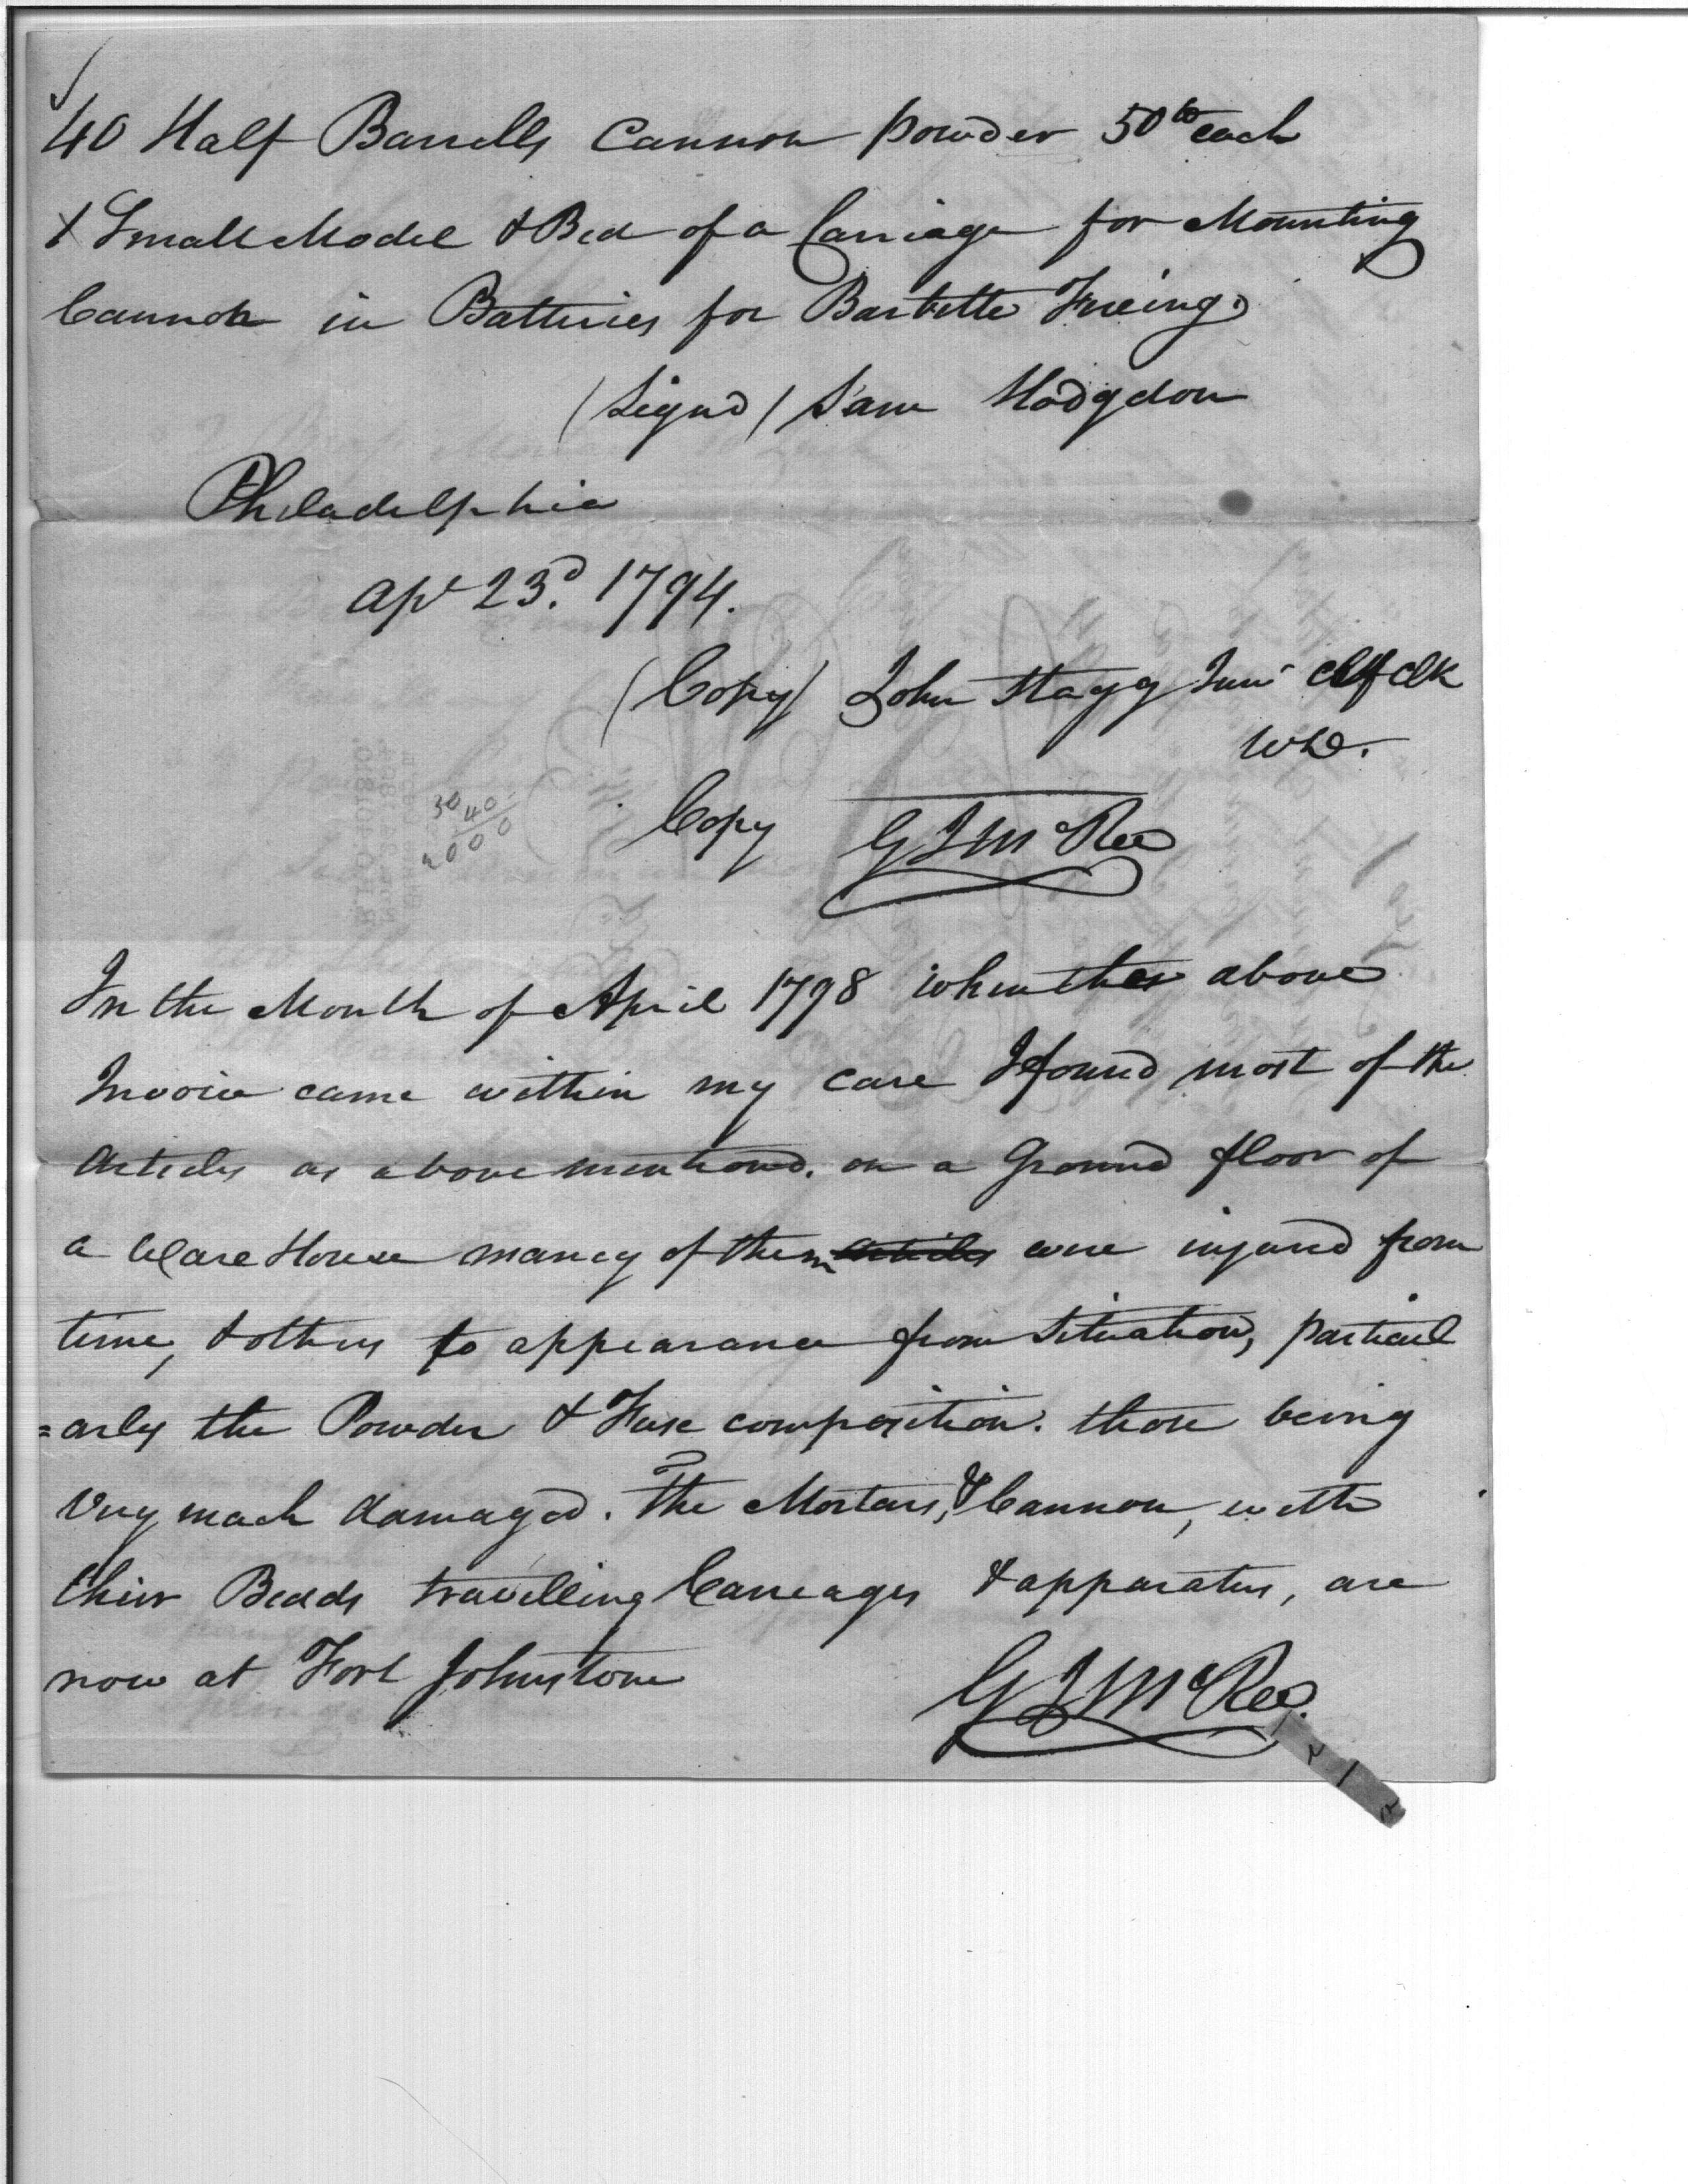 40 Half Barrells Cannon powder 50lb each
1 Small Model & Bed of a Carriage for Mounting
Cannon in Batteries for Barbette Fireing.
(Signd) Sam Hodgdon
Philadelphia
Apl 23d. 1794.
(Copy) John Stagg Junr Clk
WD.
50
40
2000
Copy GJMcRee
In the Month of April 1798 when the above
Invoice came within my care I found most of the
Articles as above mentiond. on a Ground floor of
a Ware House many of them articles were injured from
time, & others to appearance from Situation, particul
=arly the Powder & Fuse composition. those being
Very much damaged. The Mortars, & Cannon, with
thier Beads travelling Carreages & apparatus, are
now at Fort Johnstone
GJMcRee.